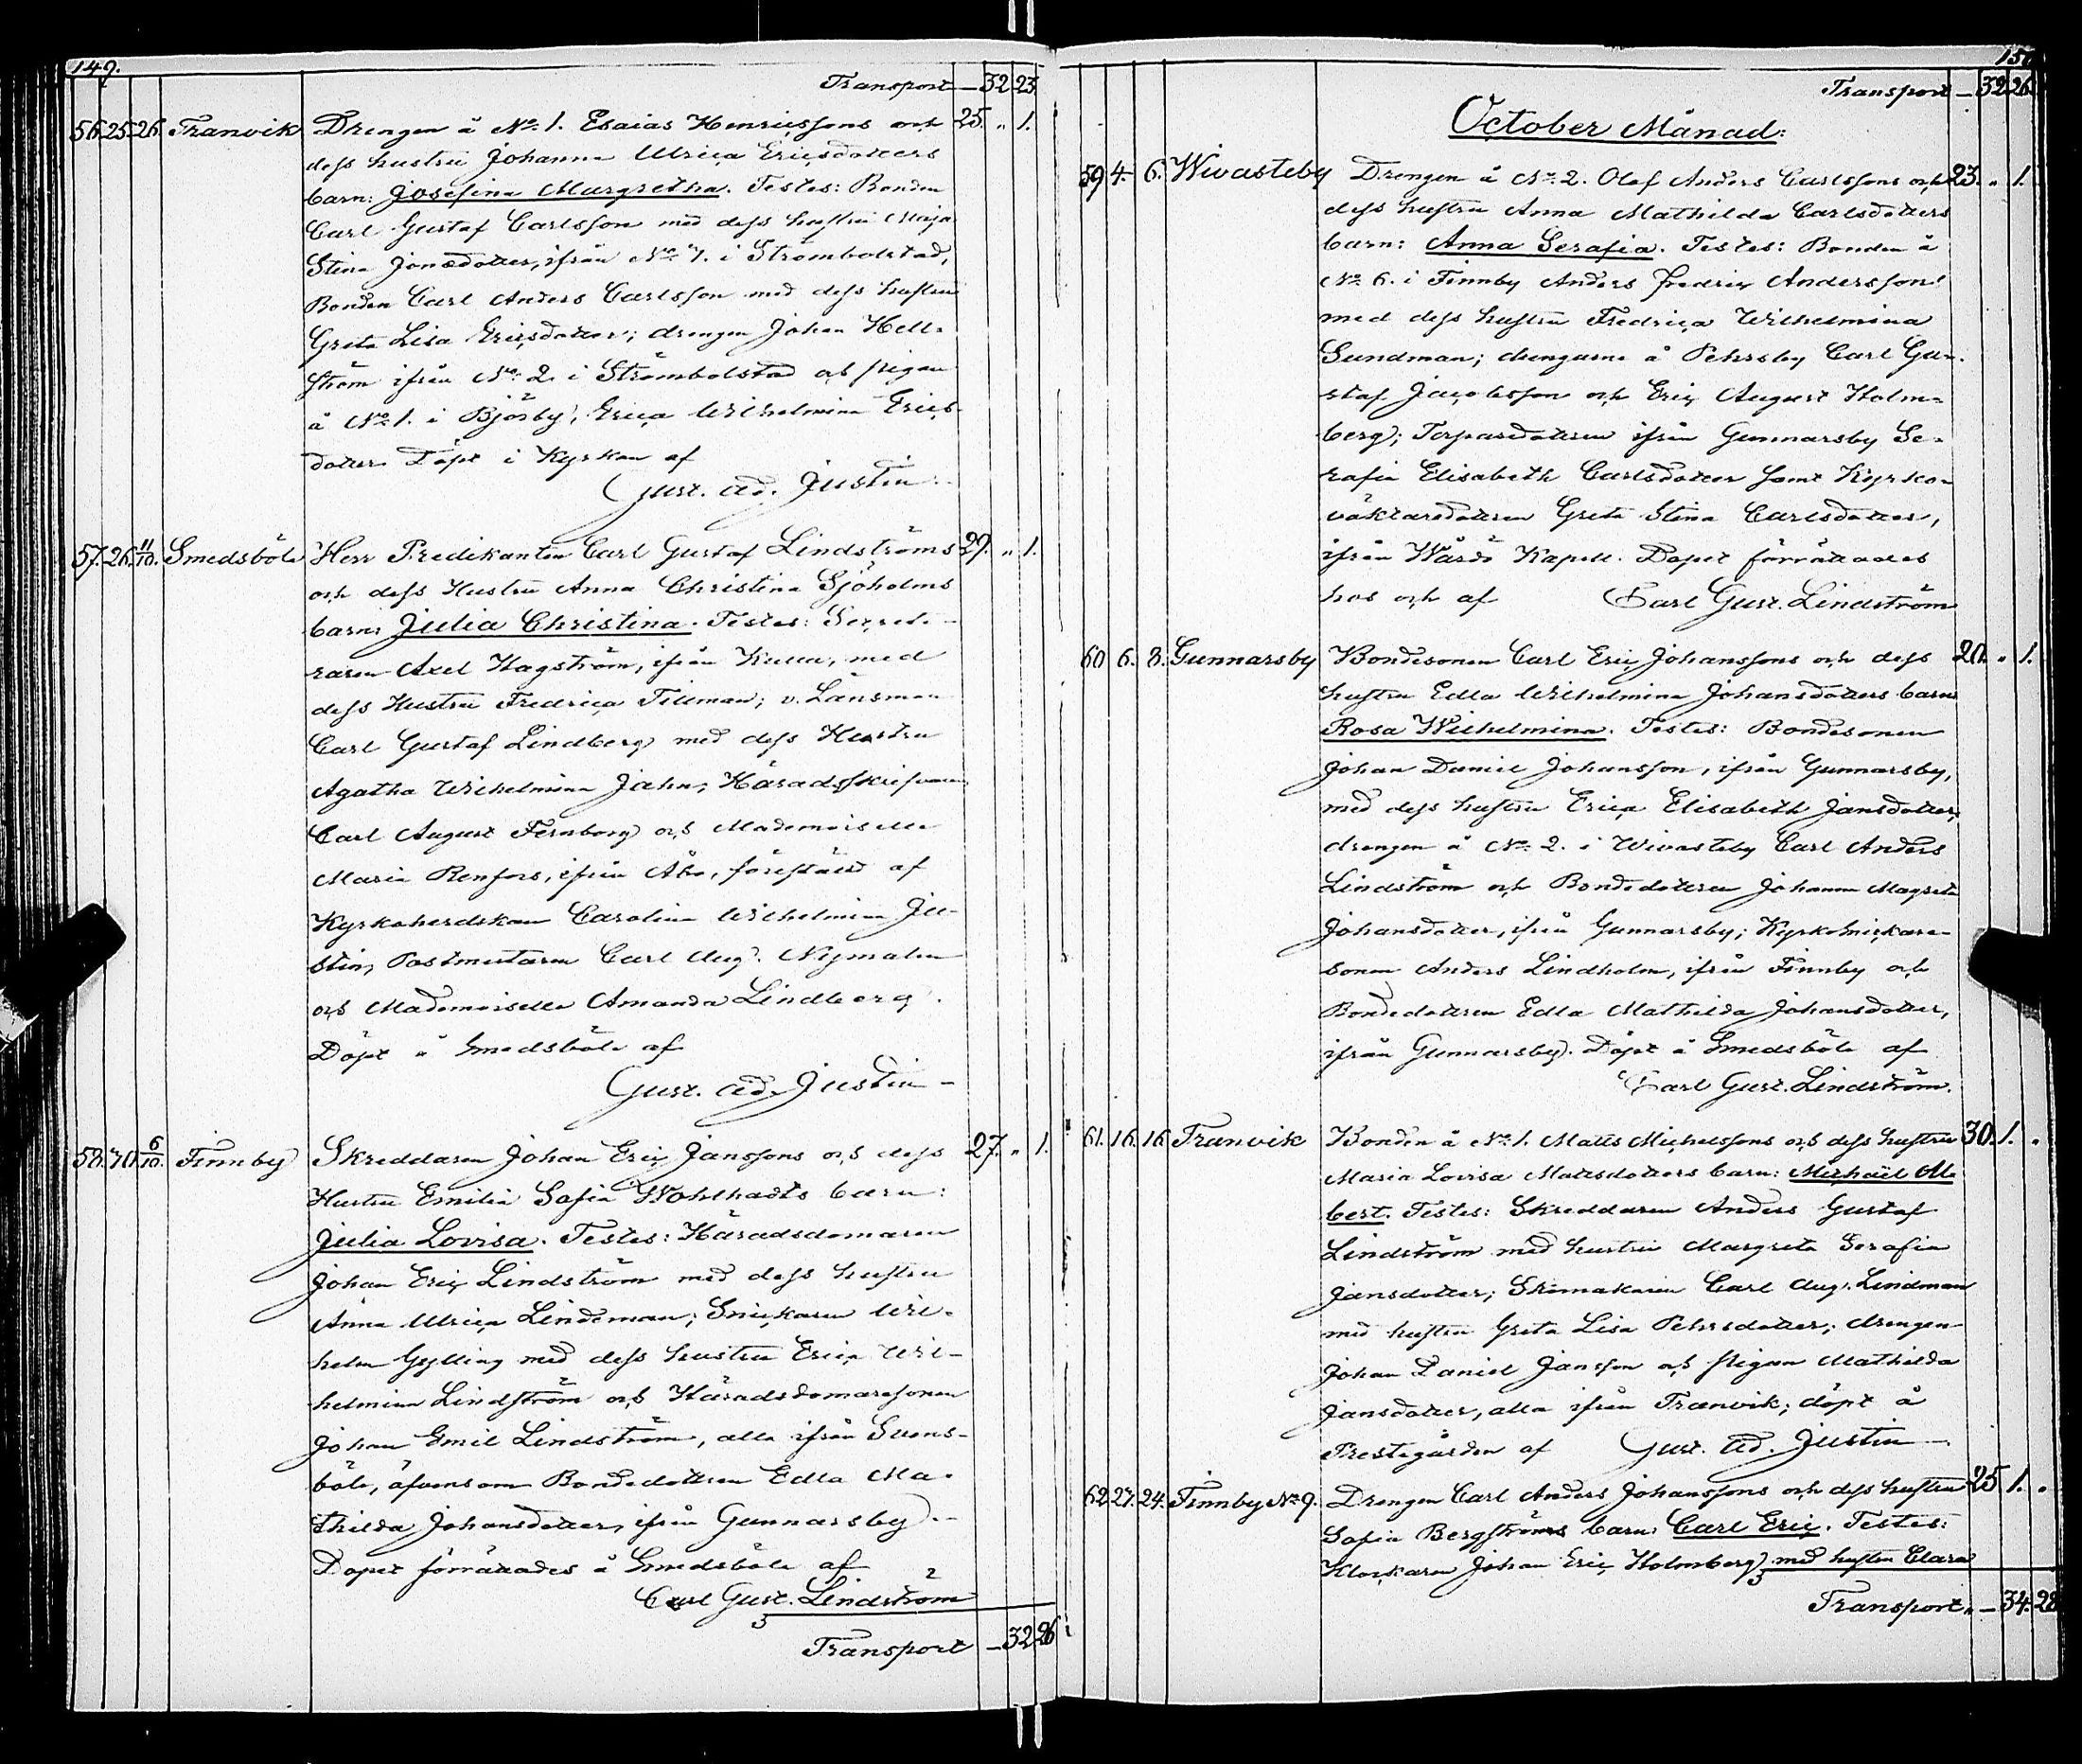 149.
Transport — 32 23
56. 25. 26. Tranvik Drengen å No. 1. Esaias Henricssons och 25. „ 1.
dess hustru Johanna Ulrica Ericsdotters
barn: Josefina Margretha. Testes: Bonden
Carl Gustaf Carlsson med dess hustru Maja
Stina Jansdotter, ifrån No. 7. i Strömbolstad,
Bonden Carl Anders Carlsson med dess hustru
Greta Lisa Ericsdotter; drengen Johan Hell-
ström ifrån No. 2 i Strömbolstad och pigan
å No. 1. i Björby, Erica Wilhelmina Erics-
dotter. Döpt i Kyrkan af
Gust. Ad. Justin.
57. 26. 11/10. Smedsböle Herr Predikanten Carl Gustaf Lindströms 29. „ 1.
och dess Hustru Anna Christina Sjöholms
barn: Julia Christina. Testes: Secrete-
raren Axel Hagström, ifrån Kulla, med
dess Hustru Fredrica Tileman; v. Länsman
Carl Gustaf Lindberg med dess Hustru
Agatha Wilhelmina Jahn, Häradsskrifvaren
Carl August Fernborg och Mademoiselle
Maria Renfors, ifrån Åbo, föreställd af
Kyrkoherdskan Carolina Wilhelmina Ju-
stin, Postmästaren Carl Aug. Nymalm
och Mademoiselle Amanda Lindberg.
Döpt å Smedsböle af
Gust. Ad. Justin —
58. 30. 6/10. Finnby Skreddaren Johan Eric Janssons och dess 27. „ 1.
Hustru Emilia Sofia Wohlhadts barn:
Julia Lovisa. Testes: Häradsdomaren
Johan Eric Lindström med dess hustru
Anna Ulrica Lindeman; Snickaren Wil-
helm Gylling med dess hustru Erica Wil-
helmina Lindström och Häradsdomaresonen
Johan Emil Lindström, alla ifrån Svens-
böle, äfvensom Bondedottren Edla Ma-
thilda Johansdotter, ifrån Gunnarsby.
Dopet förrättades å Smedsböle af
Carl Gust. Lindström
Transport — 32 26
Transport — 32 26
October Månad:
59 4. 6. Wivasteby Drengen å No. 2. Olof Anders Carlssons och 23. „ 1.
dess hustru Anna Mathilda Carlsdotters
barn: Anna Serafia. Testes: Bonden å
No. 6. i Finnby Anders Fredric Andersson
med dess hustru Fredrica Wilhelmina
Sundman; drengarne å Pehrsby Carl Gu-
staf Jacobsson och Eric August Holm-
berg; Torparedottren ifrån Gunnarsby Se-
rafia Elisabeth Carlsdotter samt Kyrko-
väktaredottren Greta Stina Carlsdotter,
ifrån Wårdö Kapell. Dopet förrättades
hos och af Carl Gust. Lindström
60 6. 8. Gunnarsby Bondesonen Carl Eric Johanssons och dess 20. „ 1.
hustru Edla Wilhelmina Johansdotters barn
Rosa Wilhelmina. Testes: Bondesonen
Johan Daniel Johansson, ifrån Gunnarsby,
med dess hustru Erica Elisabeth Jansdotter,
drengen å No. 2. i Wivasteby Carl Anders
Lindström och Bondedottren Johanna Magreta
Johansdotter, ifrån Gunnarsby; Kyrkosnickare-
sonen Anders Lindholm, ifrån Finnby och
Bondedottren Edla Mathilda Johansdotter,
ifrån Gunnarsby. Döpt å Smedsböle af
Carl Gust. Lindström.
61. 16. 16 Tranvik Bonden å No. 1. Matts Michelssons och dess hustru 30. 1. „
Maria Lovisa Mattsdotters barn: Michaël Al-
bert. Testes: Skreddaren Anders Gustaf
Lindström med hustru Margreta Serafia
Jansdotter; Skomakaren Carl Aug. Lindman
med hustru Greta Lisa Pehrsdotter; drengen
Johan Daniel Jansson och pigan Mathilda
Jansdotter, alla ifrån Tranvik; döpt å
Prestegården af Gust. Ad. Justin —
62 27. 24. Finnby No. 9. Drengen Carl Anders Johanssons och dess hustru 25 1. „
Sofia Bergströms barn: Carl Eric. Testes:
Klockaren Johan Eric Holmberg med hustru Clara
Transport. — 34. 28